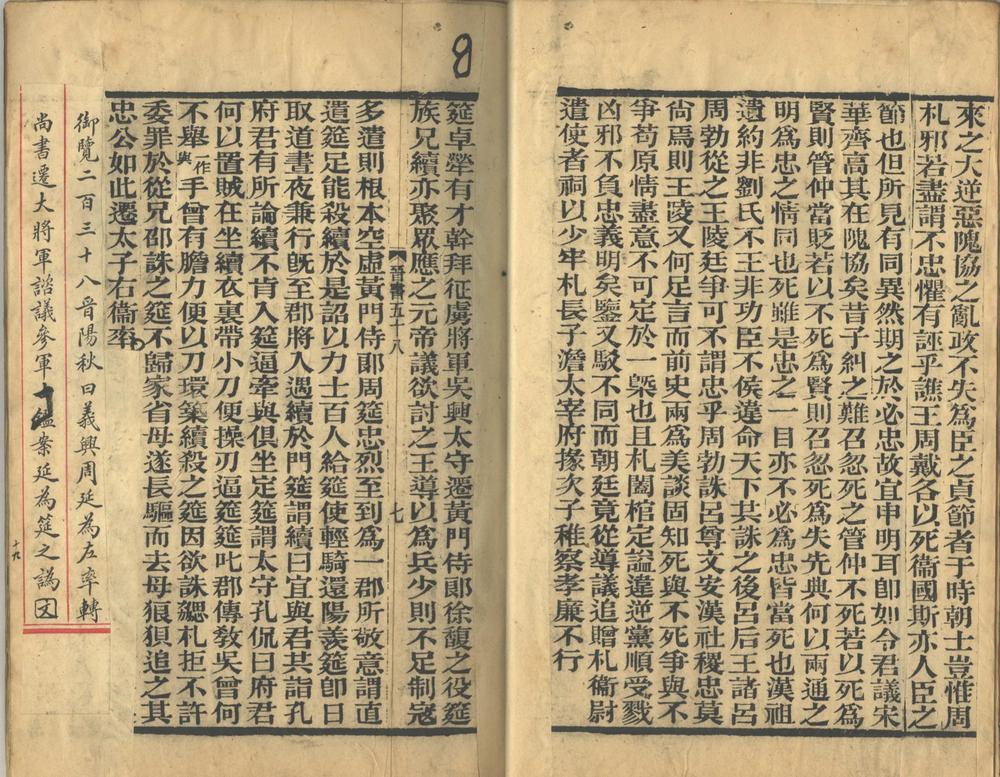 來之大逆惡隗協之亂政不失爲臣之貞節者于時朝士豈惟周
札邪若盡謂不忠懼有誣乎譙王周戴各以死衞國斯亦人臣之
節也但所見有同異然期之於必忠故宜申明耳卽如令君議宋
華齊高其在隗協矣昔子糾之難召忽死之管仲不死若以死爲
賢則管仲當貶若以不死爲賢則召忽死爲失先典何以兩通之
明爲忠之情同也死雖是忠之一目亦不必爲忠皆當死也漢祖
遺約非劉氏不王非功臣不侯違命天下共誅之後呂后王諸呂
周勃從之王陵廷爭可不謂忠乎周勃誅呂尊文安漢社稷忠莫
尙焉則王陵又何足言而前史兩爲美談固知死與不死爭與不
爭苟原情盡意不可定於一槩也且札闔棺定謚違逆黨順受戮
凶邪不負忠義明矣鑒又駁不同而朝廷竟從導議追贈札衞尉
遣使者祠以少牢札長子澹太宰府掾次子稚察孝廉不行
筵卓犖有才幹拜征虜將軍吳興太守遷黃門侍郞徐馥之役筵
族兄續亦聚眾應之元帝議欲討之王導以爲兵少則不足制寇
晉書五十八
七
多遣則根本空虛黃門侍郞周筵忠烈至到爲一郡所敬意謂直
遣筵足能殺續於是詔以力士百人給筵使輕騎還陽羨筵卽日
取道晝夜兼行旣至郡將入遇續於門筵謂續曰宜與君共詣孔
府君有所論續不肯入筵逼牽與俱坐定筵謂太守孔侃曰府君
何以置賊在坐續衣裏帶小刀便操刃逼筵筵叱郡傳敎吳曾何
不舉一作與手曾有膽力便以刀環築續殺之筵因欲誅勰札拒不許
委罪於從兄邵誅之筵不歸家省母遂長驅而去母狼狽追之其
忠公如此遷太子右衞率
御覽二百三十八晉陽秋曰義興周延為左率轉
尚書遷大將軍諮議參軍 士鑑案延為筵之譌
十九